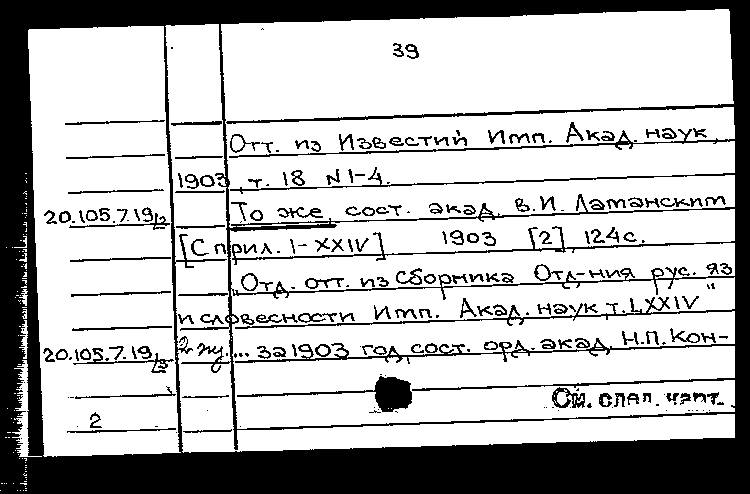 39
Отт. из Известий Имп. Акад. наук,
1903, т. 18 N 1-4.
20.105.7.19/2 То же, сост. акад. В.И. Ламанским
[С прил. I-XXIV] 1903 [2], 124с.
"Отд. отт. из Сборника Отд-ния рус. яз
и словесности Имп. Акад. наук, т. LXXIV"
20.105.7.19/3 2 эк. ... за 1903 год, сост. орд. акад. Н.П. Кон-
См. след. карт.
2